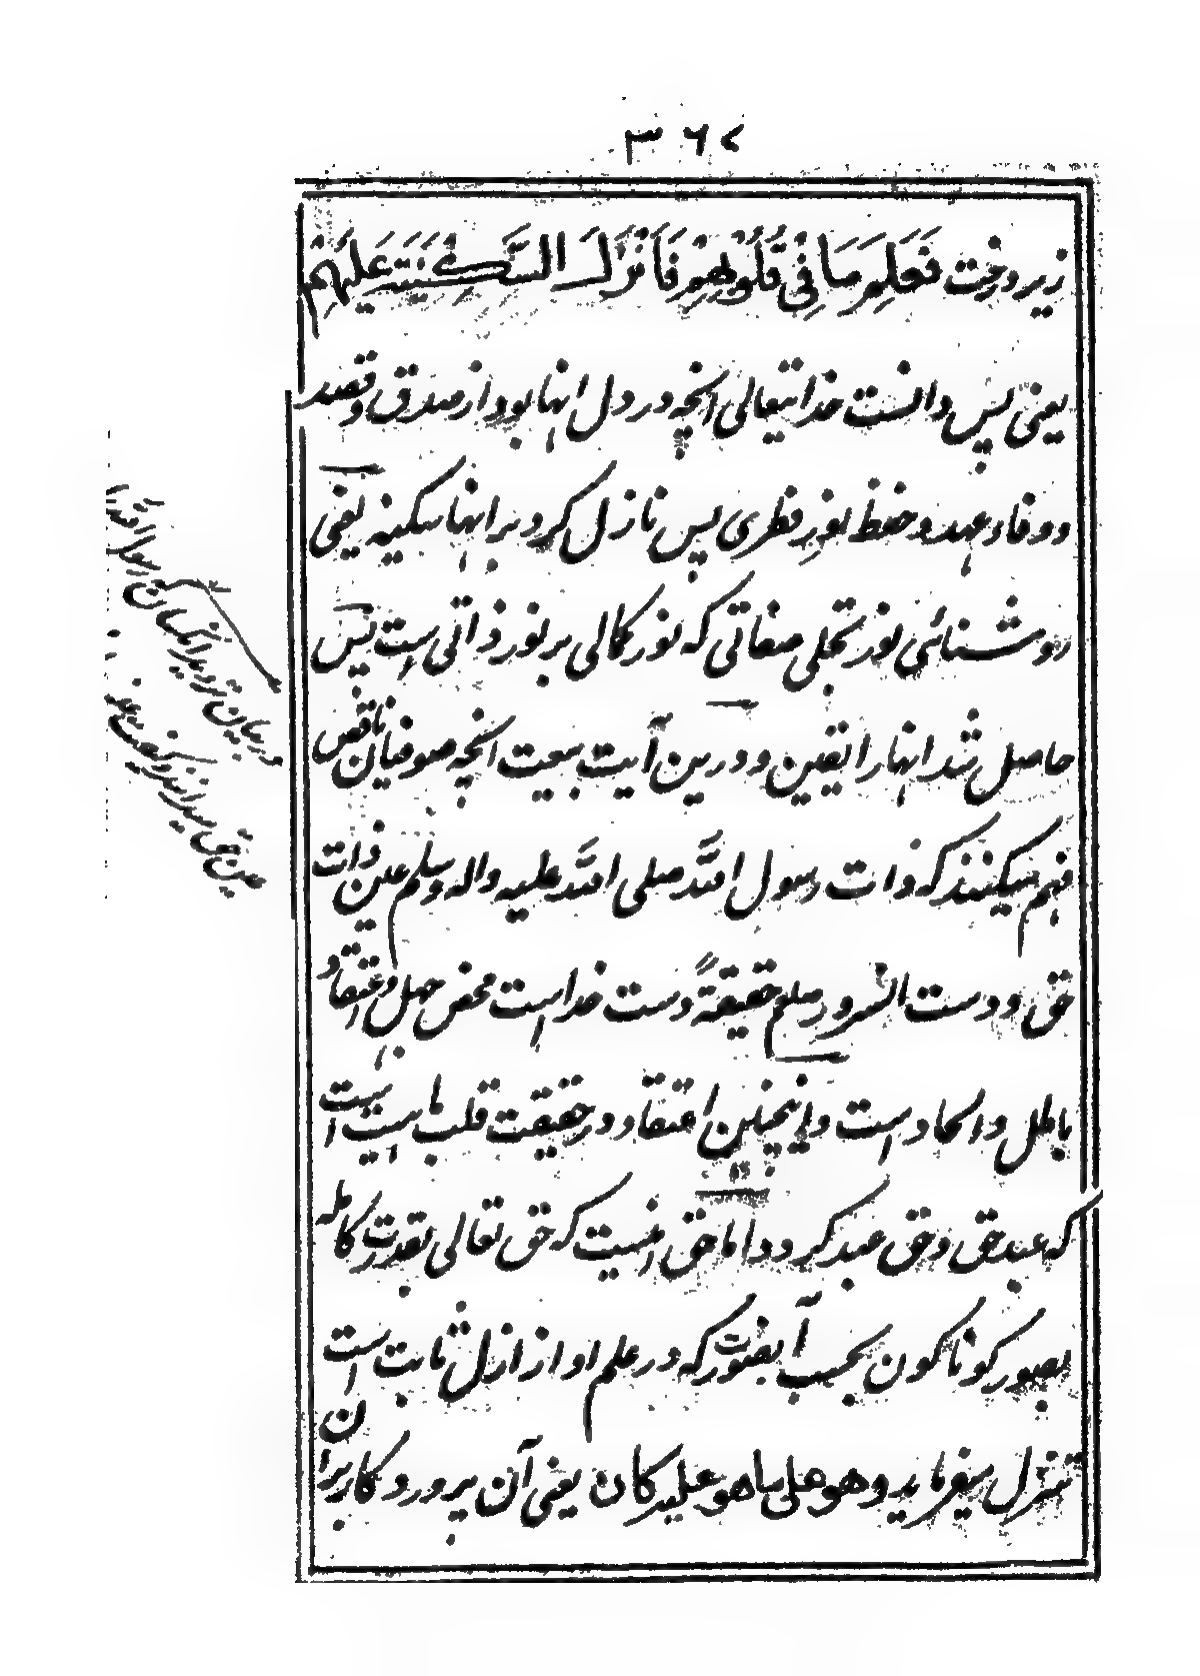 ۳۶۷
زیر درخت فَعَلِمَ مَا فِي قُلُوبِهِمْ فَأَنْزَلَ السَّكِينَةَ عَلَيْهِمْ
یعنی پس دانست خدایتعالی انچه در دل انها بود از صدق و قصد
و وفاء عهد و حفظ نور فطری پس نازل کرد بر انها سکینه یعنی
روشنائی نور تجلی صفاتی که نور کمالی بر نور ذاتی است پس
حاصل شد انها را یقین و درین آیت بیعت انچه صوفیان ناقص
فهم میکنند که ذات رسول الله صلی الله علیه واله وسلم عین ذات
حق و دست انسرور صلعم حقیقةً دست خداست محض جهل و اعتقاد
باطل و الحاد است و اینچنین اعتقاد در حقیقت قلب ماهیت است
که عبد حق و حق عبد گردد اما حق اینست که حق تعالی بقدرت کامله
بصور گوناگون بحسب آنصورت که در علم او از ازل ثابت است
تنزل میفرماید وهو علی ما هو علیه کان یعنی آن پروردگار بران
در میان تردید انکسان که رسول
عین حق میدانند